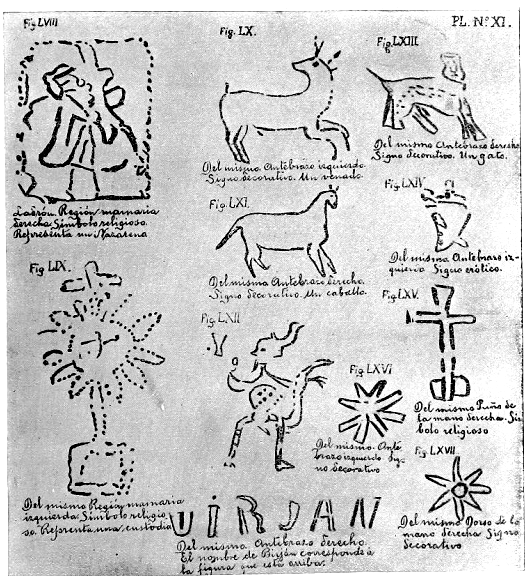 Fig. LVIII
Ladron. Región mamaria
derecha. Símbolo religioso.
Representa un Nazareno
Fig. LIX.
Del mismo Región mamaria
izquierda. Símbolo religio-
so. Representa una custodia
Fig. LX.
Del mismo Antebrazo izquierdo
Signo decorativo. Un venado.
Fig. LXI.
Del mismo Antebrazo derecho.
Signo decorativo. Un caballo.
Fig. LXII
VIRJAN
Del mismo Antebrazo derecho.
El nombre de Birján corresponde á
la figura que está arriba.
PL. Nº XI.
Fig. LXIII
Del mismo Antebrazo derecho
Signo decorativo. Un gato.
Fig. LXIV
Del mismo Antebrazo iz-
quierdo Signo erótico.
Fig. LXV.
Del mismo Puño de
la mano derecha. Sím
bolo religioso
Fig. LXVI
Del mismo. Ante
brazo izquierdo. Sig-
no Decorativo
Fig. LXVII
Del mismo Dorso de la
mano derecha Signo
Decorativo